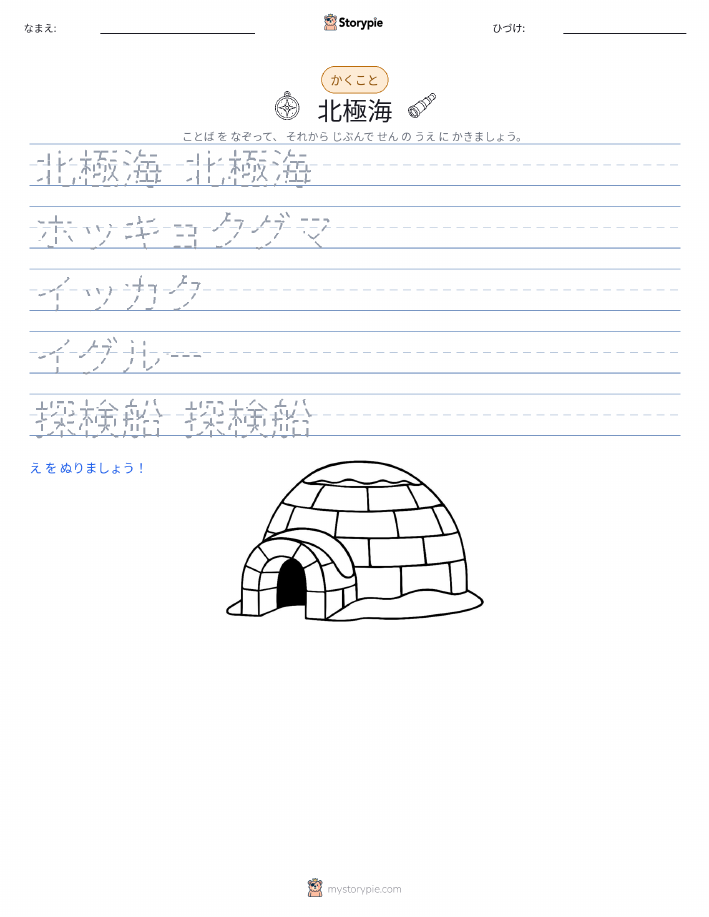 なまえ:
Storypie
ひづけ:
かくこと
北極海
ことば を なぞって、 それから じぶんで せん の うえ に かきましょう。
北極海 北極海
ホッキョクグマ
イッカク
イグルー
探検船 探検船
え を ぬりましょう！
mystorypie.com